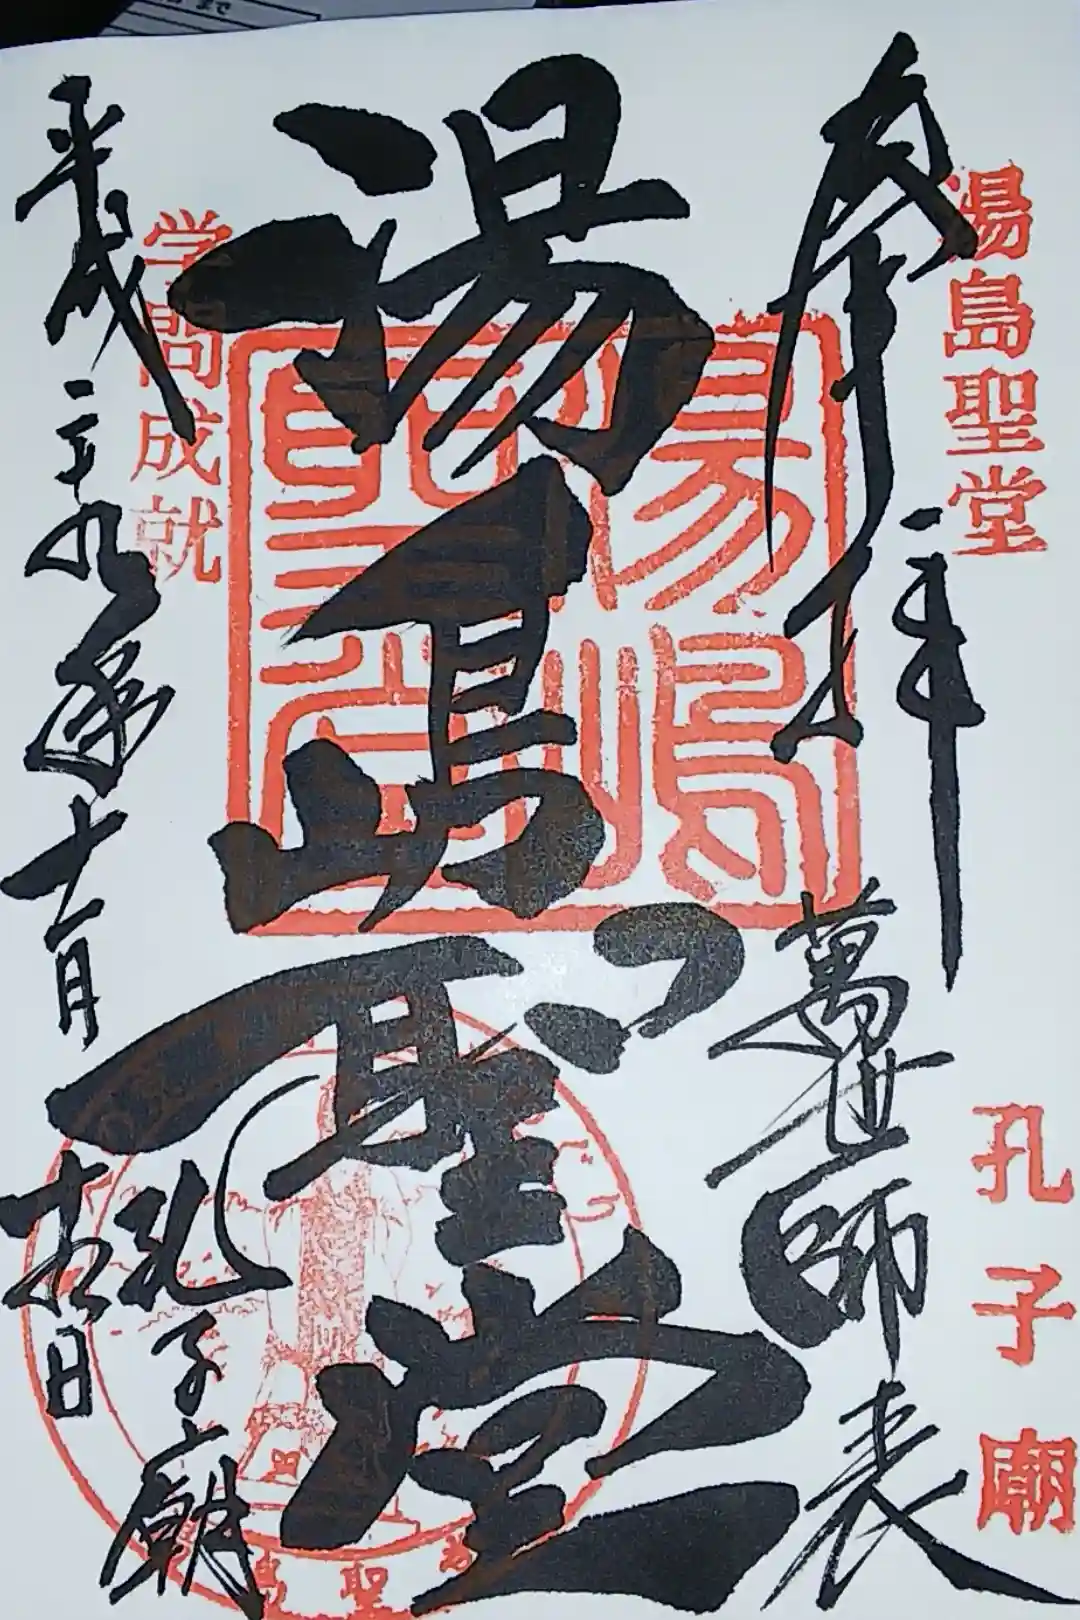 奉拝
湯島聖堂
萬世師表
孔子廟
湯島聖堂
湯島聖堂
学問成就
孔子廟
平成二十九年十一月
日
まで